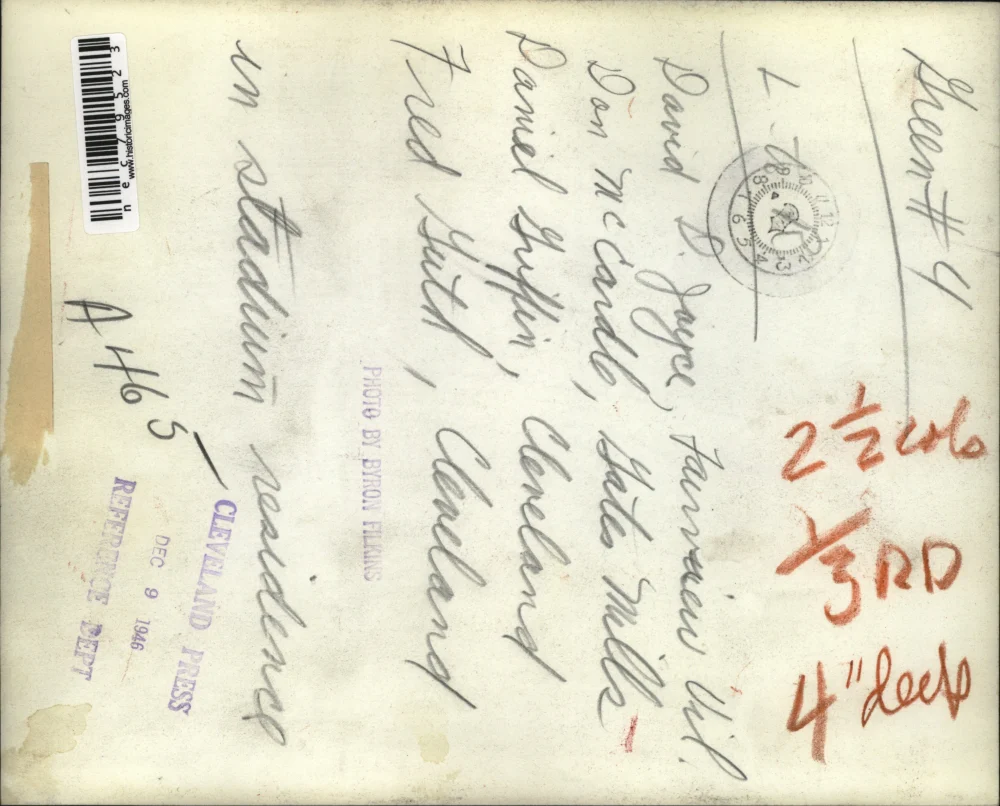 Green # 4
L. To R.
David D. Joyce, Fairview Vil.
Don McCardle, Gates Mills
Daniel Griffin, Cleveland
Fred Guitt, Cleveland
in stadium residence
A H6 5
PHOTO BY BYRON FILKINS
CLEVELAND PRESS
DEC 9 1946
REFERENCE DEPT
2 1/2 cols
1/3 RD
4" deep
www.historicimages.com